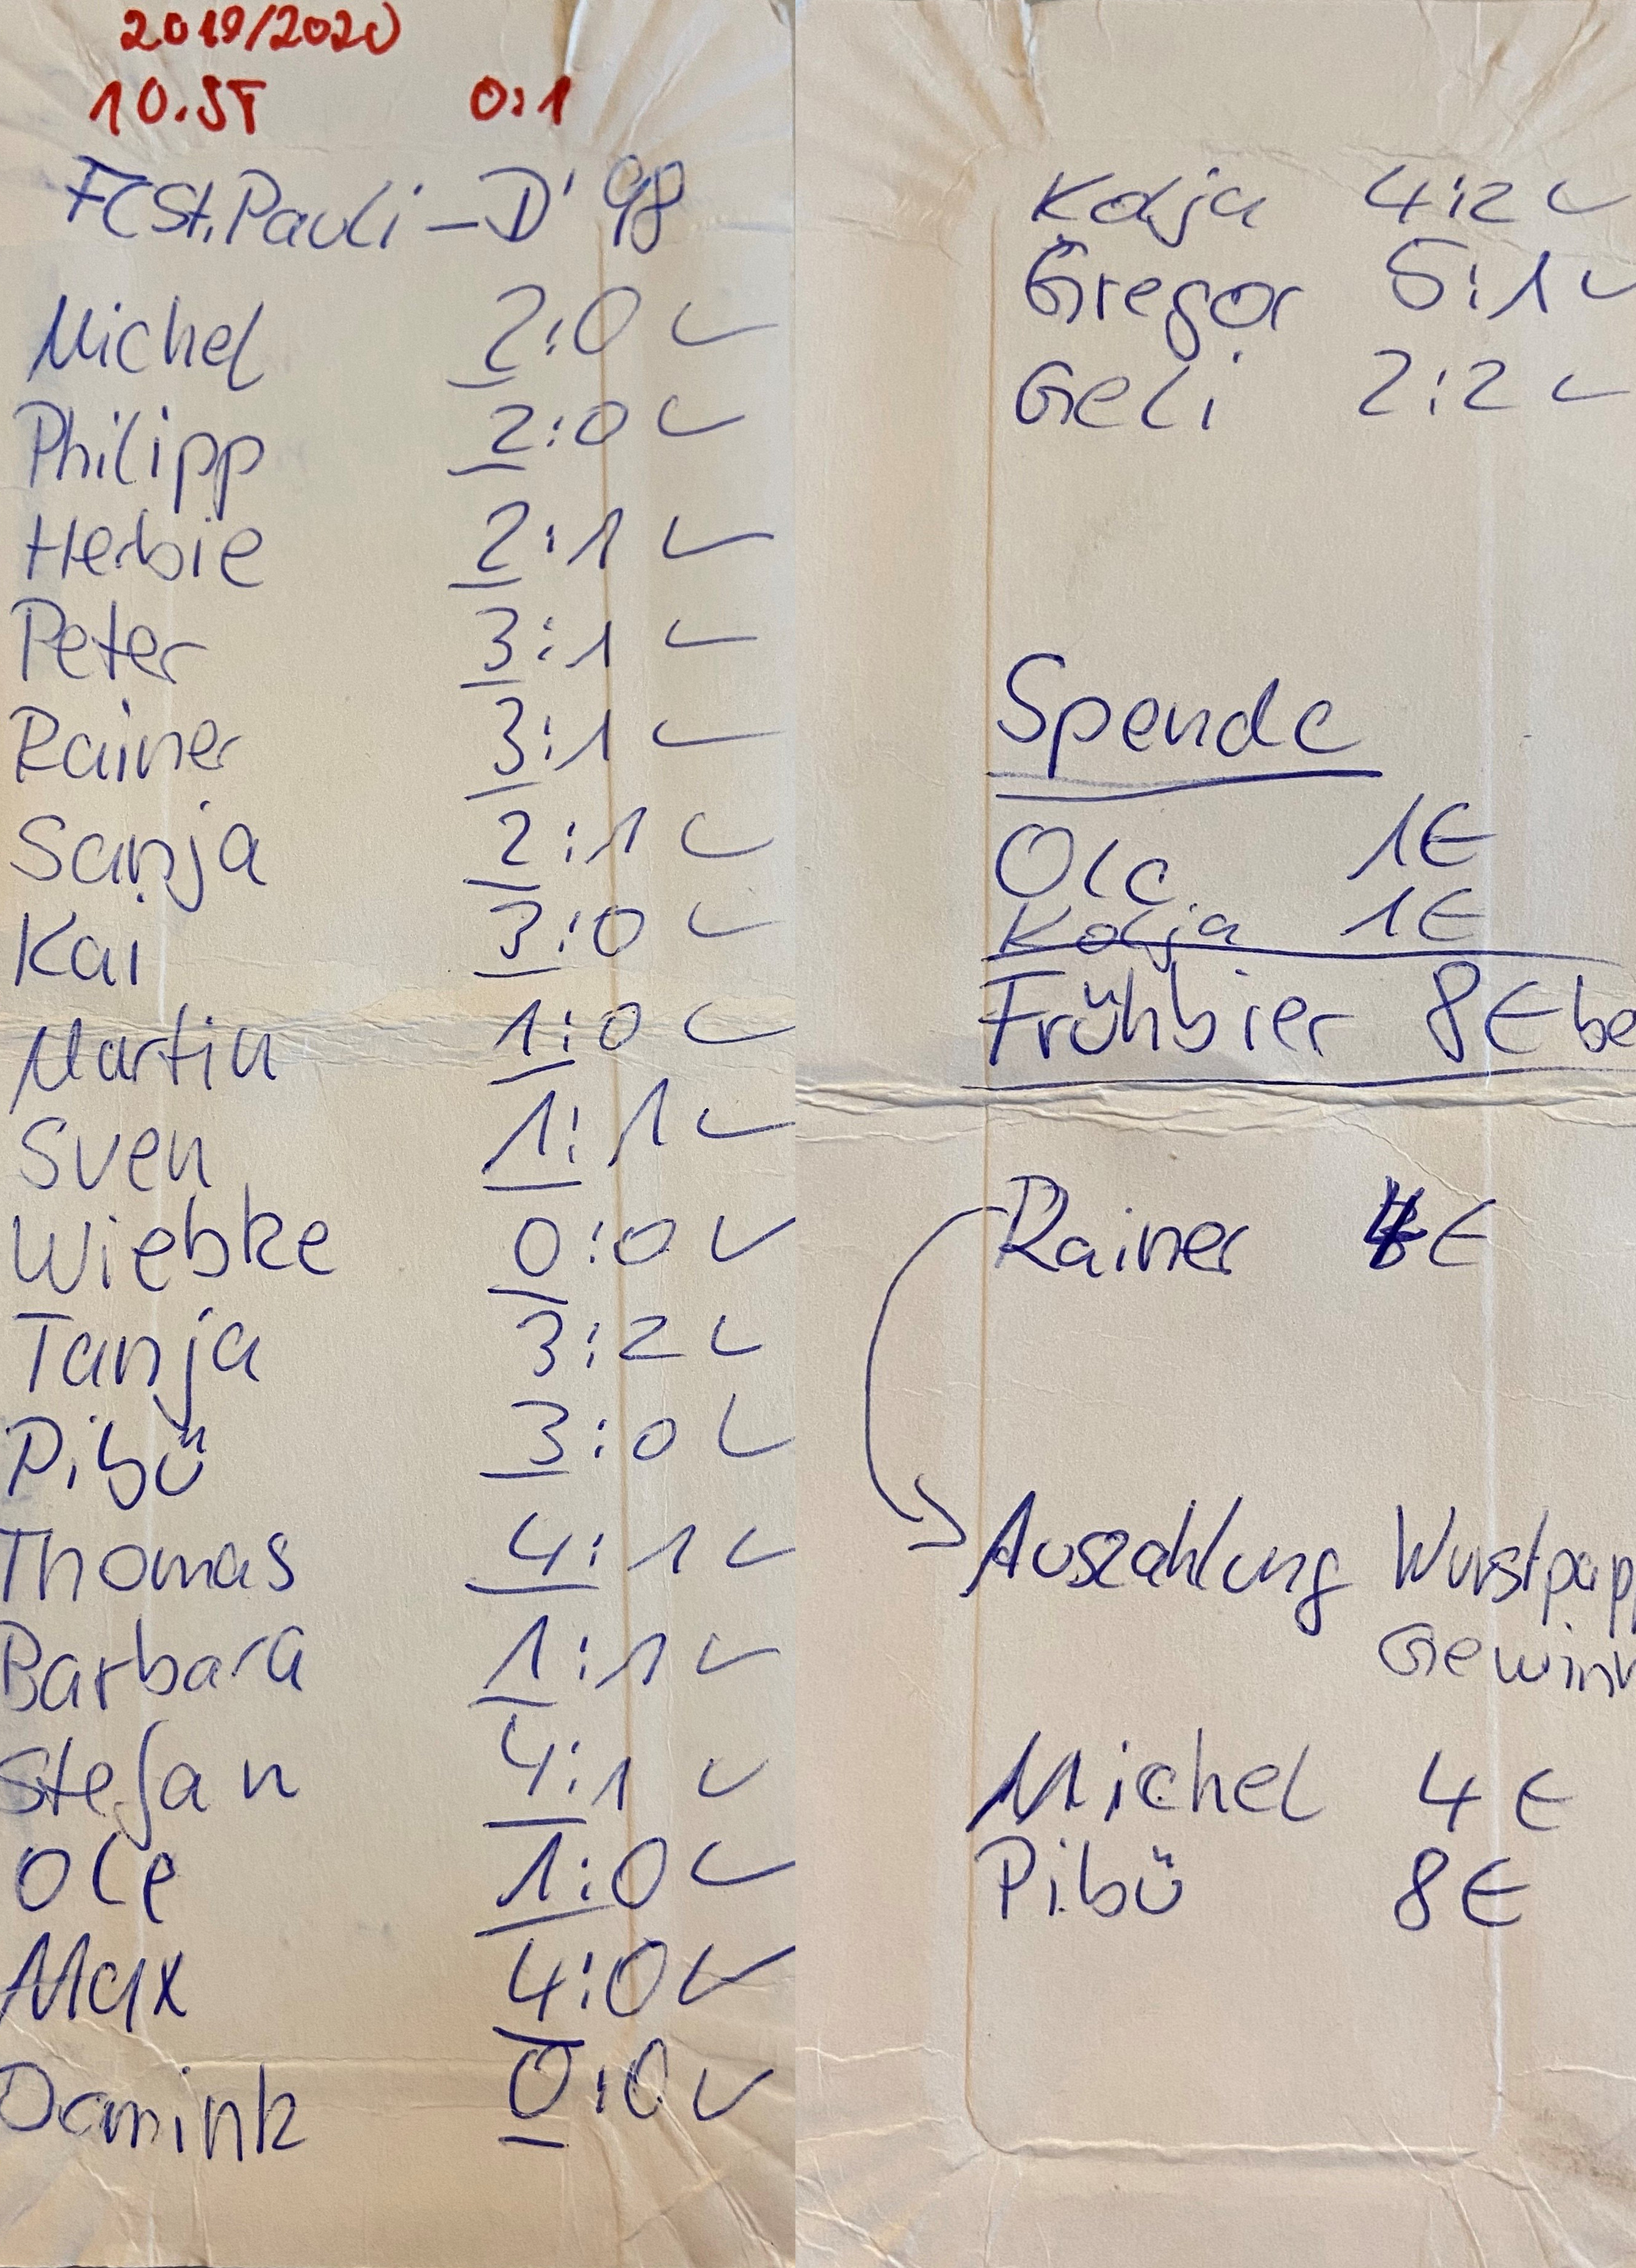 2019/2020
10.ST 0:1
FC St. Pauli – D'98
Michel 2:0 ✓
Philipp 2:0 ✓
Herbie 2:1 ✓
Peter 3:1 ✓
Rainer 3:1 ✓
Sanja 2:1 ✓
Kai 3:0 ✓
Martin 1:0 ✓
Sven 1:1 ✓
Wiebke 0:0 ✓
Tanja 3:2 ✓
Pibü 3:0 ✓
Thomas 4:1 ✓
Barbara 1:1 ✓
Stefan 4:1 ✓
Ole 1:0 ✓
Max 4:0 ✓
Domink 0:0 ✓
Kolja 4:2 ✓
Gregor 5:1 ✓
Geli 2:2 ✓
Spende
Ole 1€
Kolja 1€
Frühbier 8€ be
Rainer €
Auszahlung Wurstpapp
Gewinn
Michel 4€
Pibü 8€